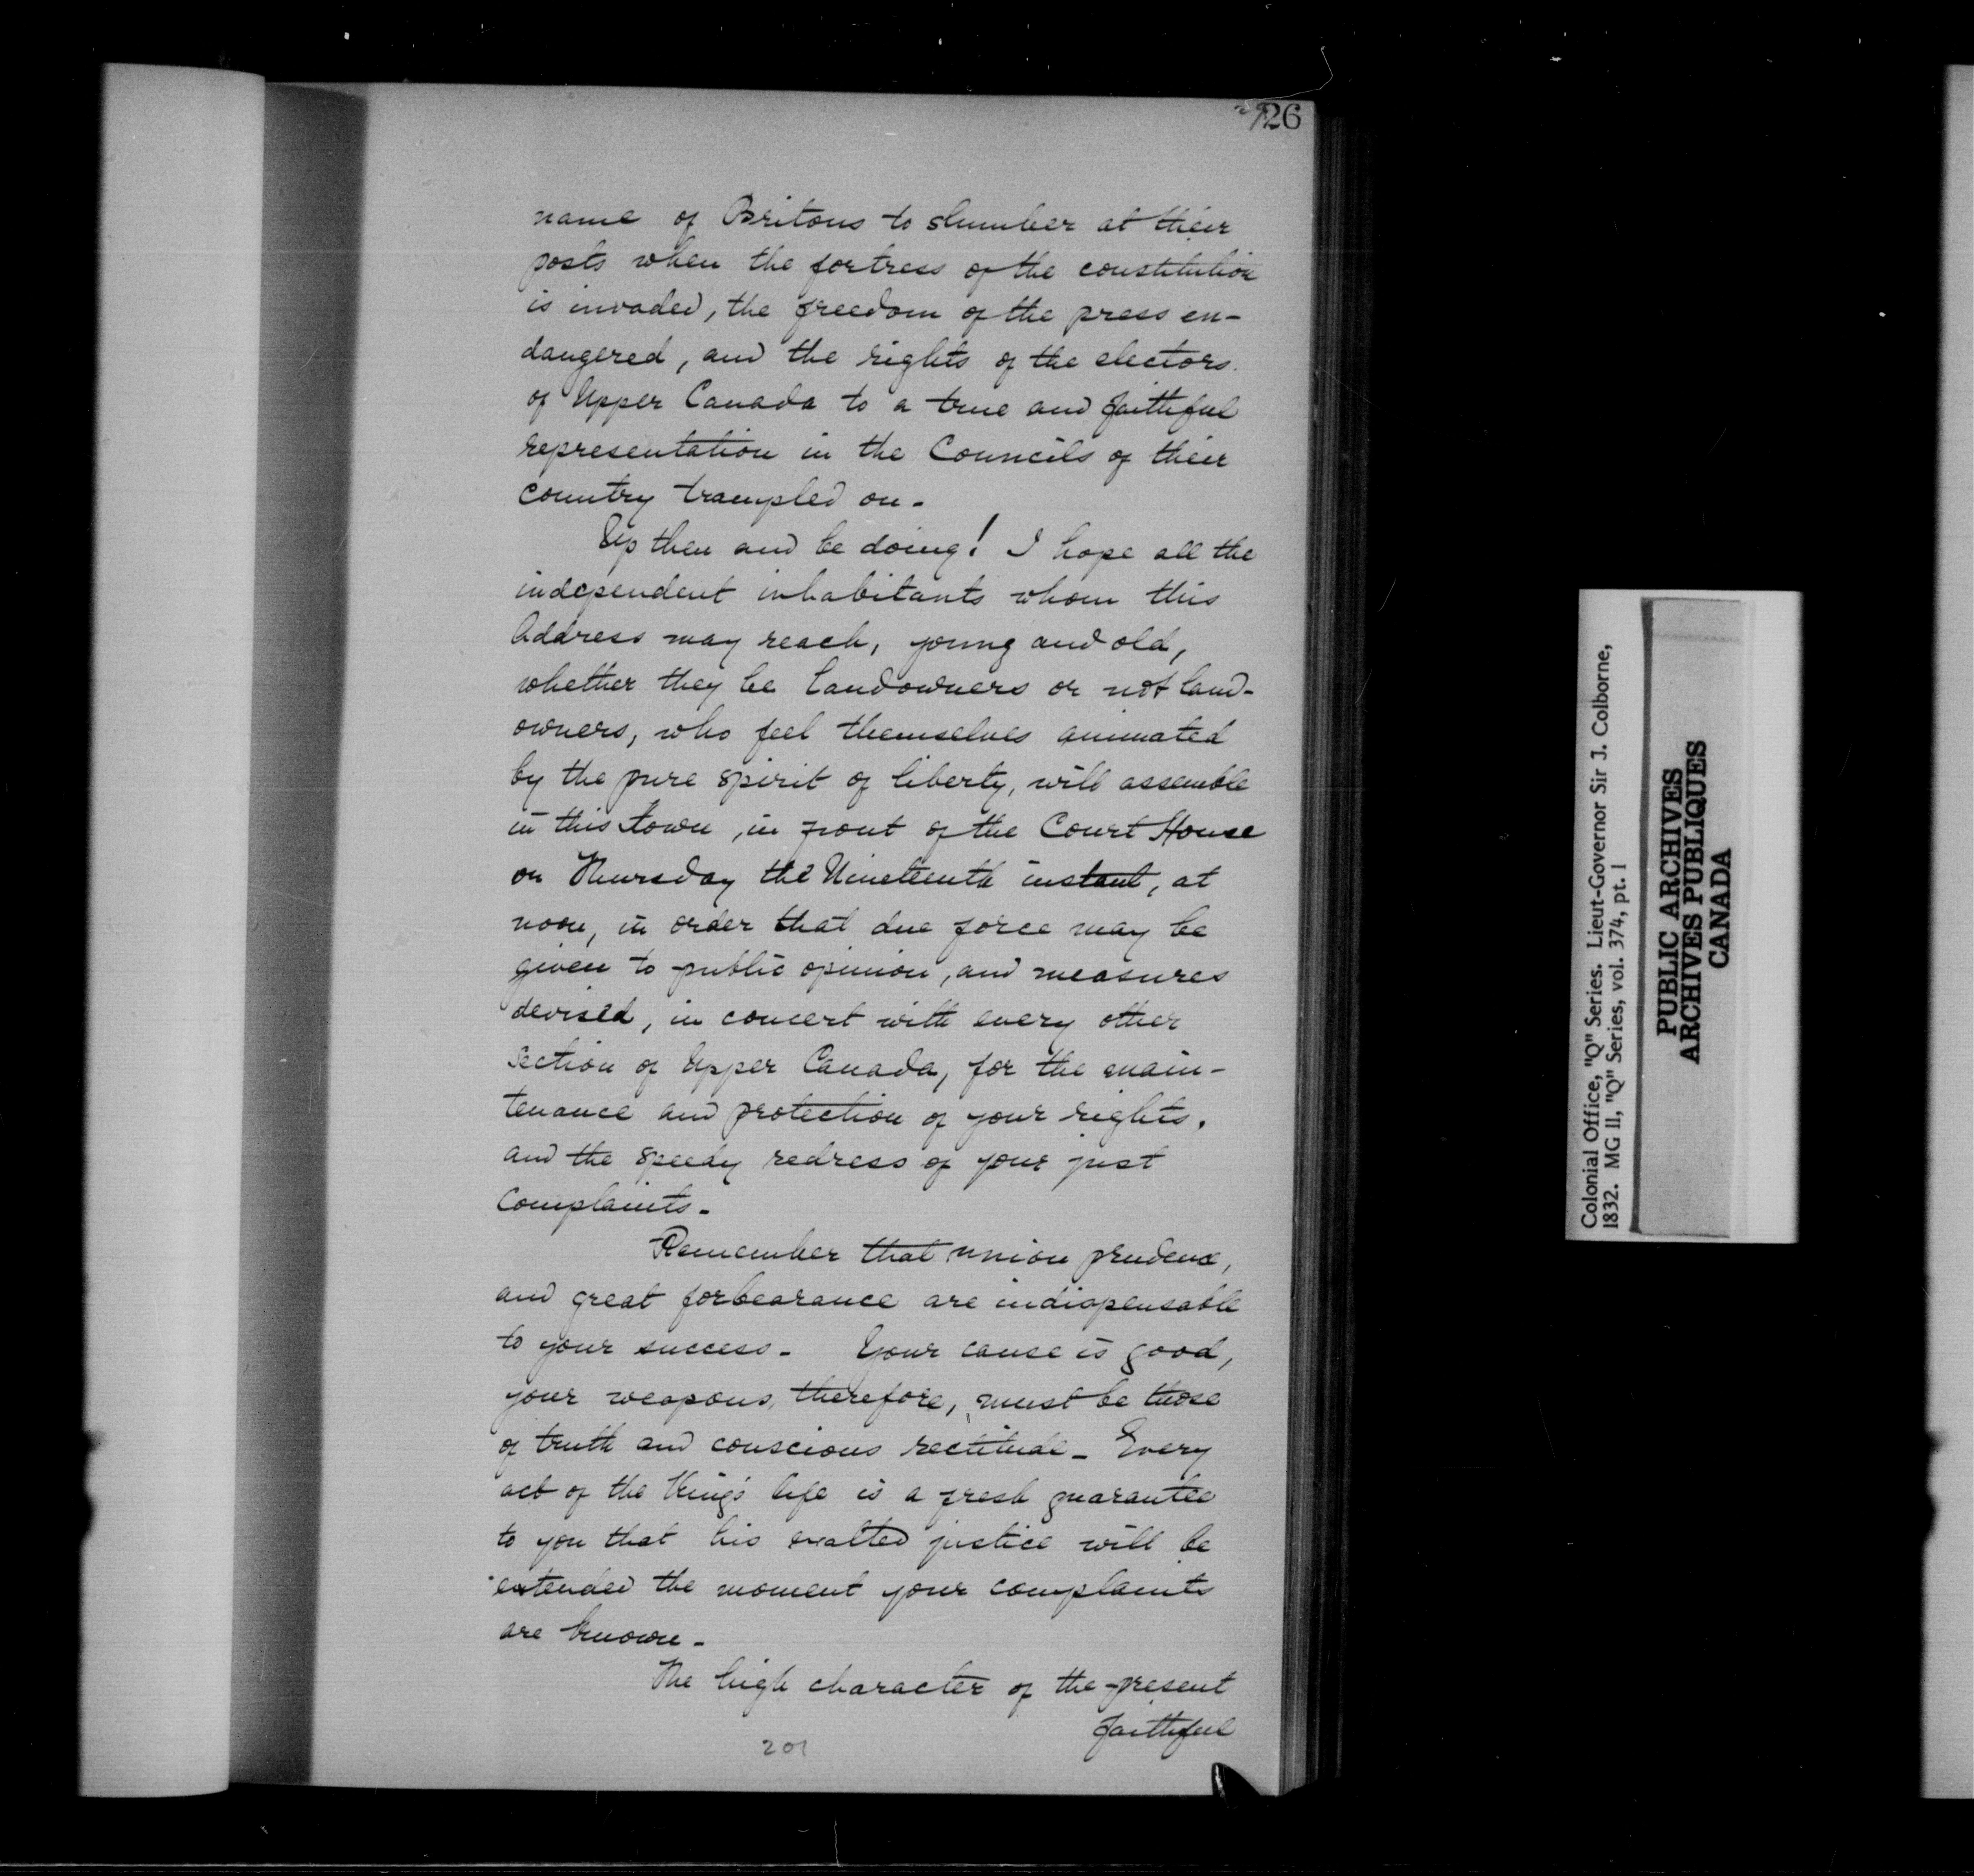 26
name of Britons to slumber at their
posts when the fortress of the constitution
is invaded, the freedom of the press en-
dangered, and the rights of the electors
of Upper Canada to a true and faithful
representation in the Councils of their
country trampled on -
Up then and be doing! I hope all the
independent inhabitants whom this
Address may reach, young and old,
whether they be landowners or not land-
owners, who feel themselves animated
by the pure spirit of liberty, will assemble
in this town, in front of the Court House
on Thursday the Nineteenth instant, at
noon, in order that due force may be
given to public opinion, and measures
devised, in concert with every other
section of Upper Canada, for the main-
tenance and protection of your rights,
and the speedy redress of your just
Complaints -
Remember that union prudence,
and great forbearance are indispensable
to your success - Your cause is good,
your weapons, therefore, must be those
of truth and conscious rectitude - Every
act of the King's life is a fresh guarantee
to you that his exalted justice will be
extended the moment your complaints
are known -
The high character of the present
faithful
201
Colonial Office, "Q" Series. Lieut-Governor Sir J. Colborne,
1832. MG 11, "Q" Series, vol. 374, pt. 1
PUBLIC ARCHIVES
ARCHIVES PUBLIQUES
CANADA